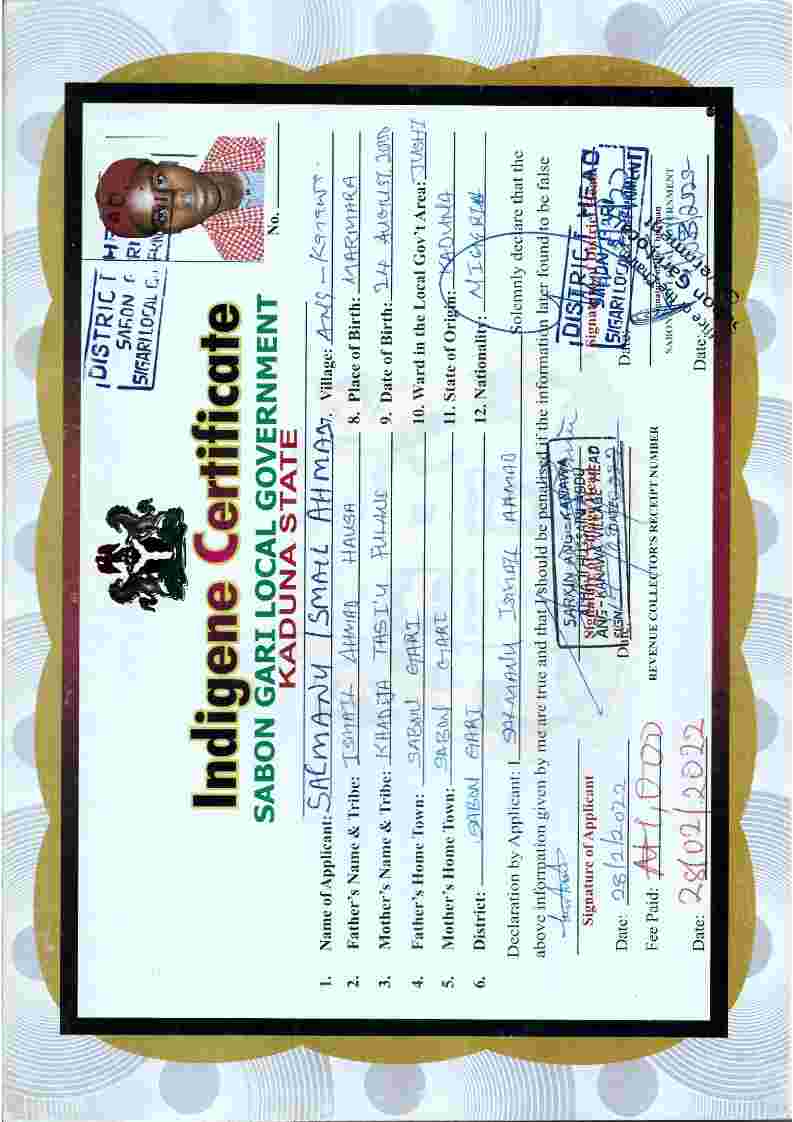 Indigene Certificate
SABON GARI LOCAL GOVERNMENT
KADUNA STATE
DISTRICT
SABON
S/GARI LOCAL G
No.
1. Name of Applicant: SALMANU ISMAIL AHMAD
2. Father's Name & Tribe: ISMAIL AHMAD HAUSA
3. Mother's Name & Tribe: KHADIJA TASI'U FULANI
4. Father's Home Town: SABON GARI
5. Mother's Home Town: SABON GARI
6. District: SABON GARI
7. Village: ANG-
8. Place of Birth: MARMARA
9. Date of Birth: 24 AUGUST 2000
10. Ward in the Local Gov't Area: JUSHI
11. State of Origin: KADUNA
12. Nationality: NIGERIA
Declaration by Applicant: I SALMANU ISMAIL AHMAD Solemnly declare that the
above information given by me are true and that I should be penalised if the information later found to be false
Signature of Applicant
Date: 28/2/2022
SARKIN ANG-KANAWA
ALHAJI HUSSAINI ABDU
ANG-KANAWA VILLAGE HEAD
SIGN DATE
Date:
DISTRICT HEAD
SABON GARI
S/GARI LOCAL GOVERNMENT
Date:
Fee Paid: ₦1,000
Date: 28/02/2022
REVENUE COLLECTOR'S RECEIPT NUMBER
SABON GOVERNMENT
Date: